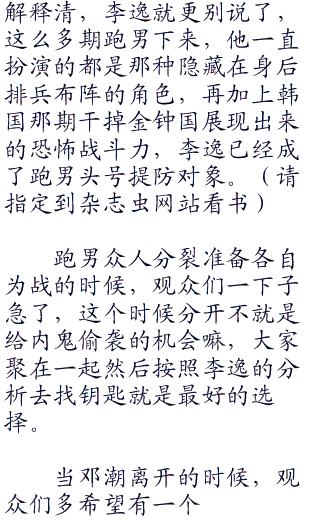 解释清，李逸就更别说了，
这么多期跑男下来，他一直
扮演的都是那种隐藏在身后
排兵布阵的角色，再加上韩
国那期干掉金钟国展现出来
的恐怖战斗力，李逸已经成
了跑男头号提防对象。（请
指定到杂志虫网站看书）
跑男众人分裂准备各自
为战的时候，观众们一下子
急了，这个时候分开不就是
给内鬼偷袭的机会嘛，大家
聚在一起然后按照李逸的分
析去找钥匙就是最好的选
择。
当邓潮离开的时候，观
众们多希望有一个